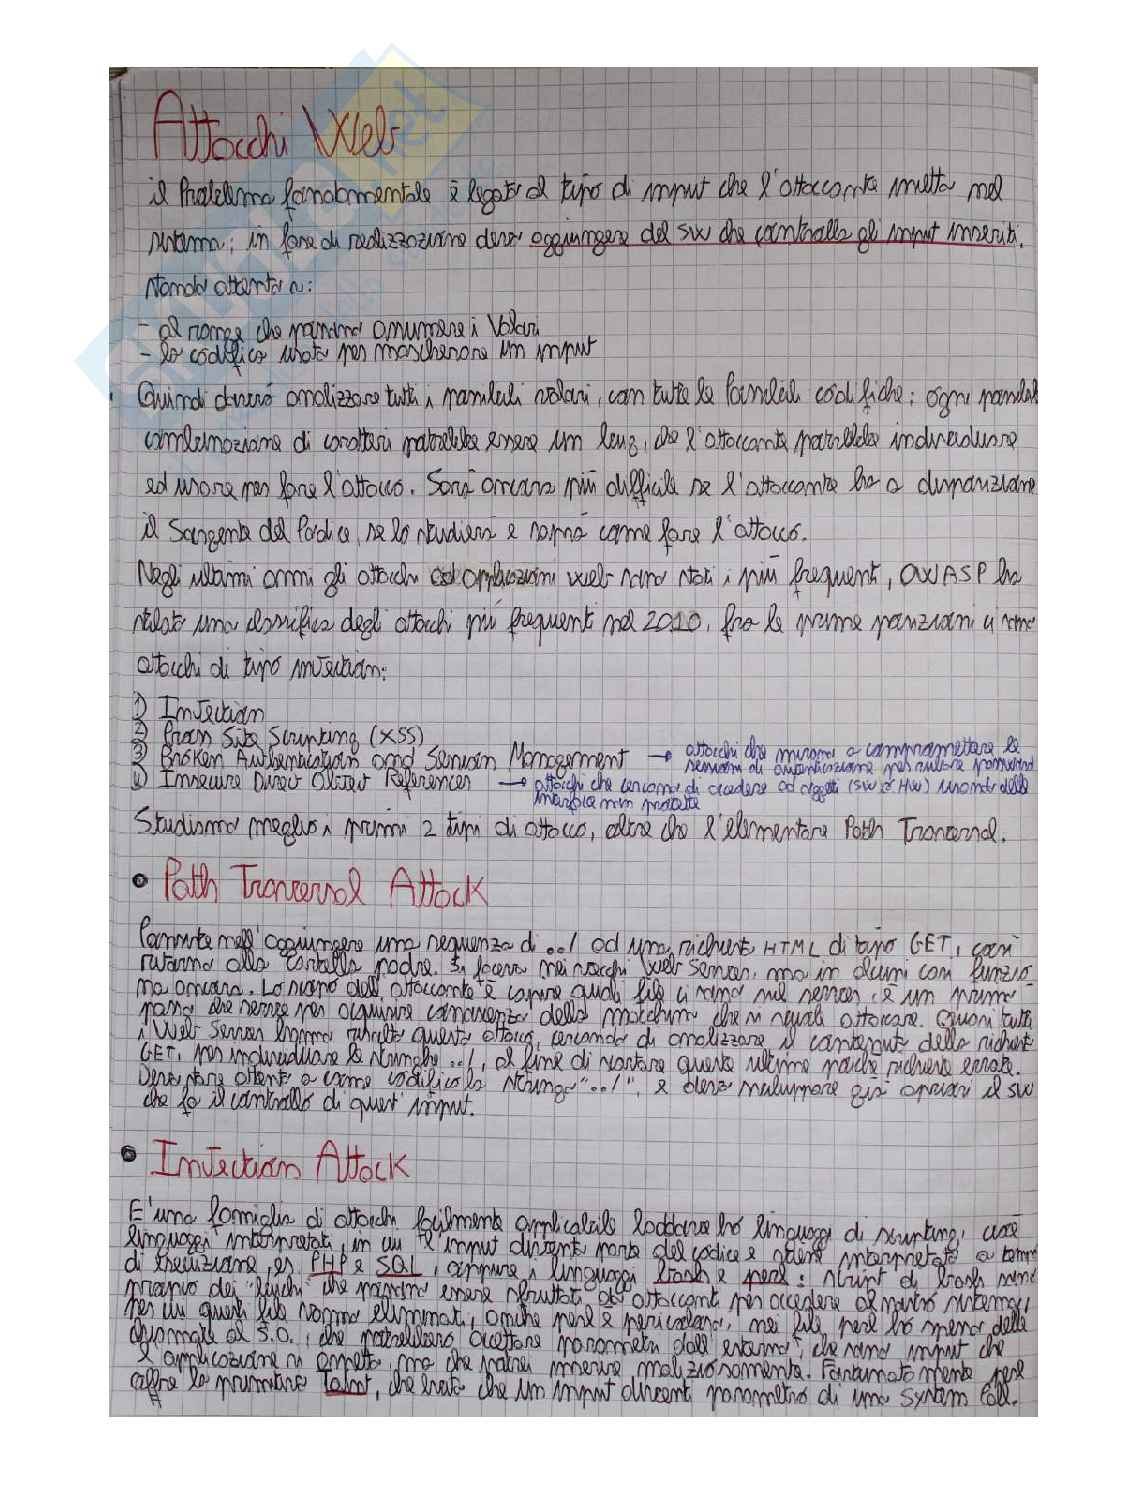 Attacchi Web
il Problema fondamentale è legato al tipo di input che l'attaccante mette nel
sistema; in fase di realizzazione devo aggiungere del SW che controlla gli input inseriti.
Stando attento a:
- al range che possono assumere i Valori
- la codifica usata per mascherare un input
Quindi dovrò analizzare tutti i possibili valori, con tutte le possibili codifiche; ogni possibile
combinazione di caratteri potrebbe essere un bug, che l'attaccante potrebbe individuare
ed usare per fare l'attacco. Sarà ancora più difficile se l'attaccante ha a disposizione
il Sorgente del Codice, se lo studierà e saprà come fare l'attacco.
Negli ultimi anni gli attacchi ad applicazioni web sono stati i più frequenti, OWASP ha
stilato una classifica degli attacchi più frequenti nel 2010, fra le prime posizioni ci sono
attacchi di tipo injection:
1) Injection
2) Cross Site Scripting (XSS)
3) Broken Authentication and Session Management → attacchi che mirano a compromettere le
sessioni di autenticazione per rubare password
4) Insecure Direct Object References → attacchi che cercano di accedere ad oggetti (SW o HW) usando delle
interfacce non protette
Studiamo meglio i primi 2 tipi di attacco, oltre che l'elementare Path Traversal.
• Path Traversal Attack
Consiste nell'aggiungere una sequenza di ../ ad una richiesta HTML di tipo GET, così
ritorno alla cartella padre. Si faceva nei vecchi Web Server, ma in alcuni casi funzio
na ancora. Lo scopo dell'attaccante è capire quali file ci sono sul server, è un primo
passo che serve per acquisire conoscenza della macchina che si vuole attaccare. Quasi tutti
i Web Server hanno risolto questo attacco, cercando di analizzare il contenuto della richiesta
GET, per individuare le stringhe ../, al fine di scartare queste ultime poiché richieste errate.
Devo stare attento a come codifico la stringa "../", e devo sviluppare già a priori il SW
che fa il controllo di quest'input.
• Injection Attack
E' una famiglia di attacchi facilmente applicabile laddove ho linguaggi di scripting, cioè
linguaggi interpretati, in cui l'input diventa parte del codice e viene interpretato a tempo
di Esecuzione, es. PHP e SQL, oppure i linguaggi bash e perl: script di bash sono
proprio dei "buchi" che possono essere sfruttati da attaccanti per accedere al nostro sistema,
per cui questi file vanno eliminati, anche perl è pericoloso, nei file perl ho spesso delle
chiamate al S.O., che potrebbero accettare parametri dall'esterno, che sono input che
l'applicazione si aspetta, ma che potrei inserire maliziosamente. Fortunatamente perl
offre la primitiva Taint, che evita che un input diventi parametro di una System Call.